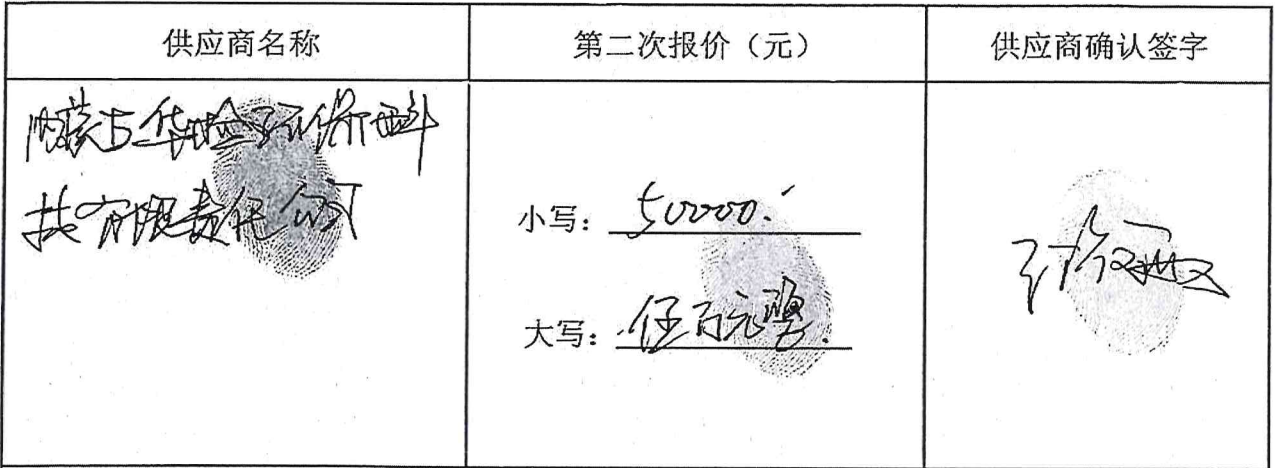 供应商名称
第二次报价（元）
供应商确认签字
内蒙古华
有限责任公司
小写：50000.
大写：伍 元整.